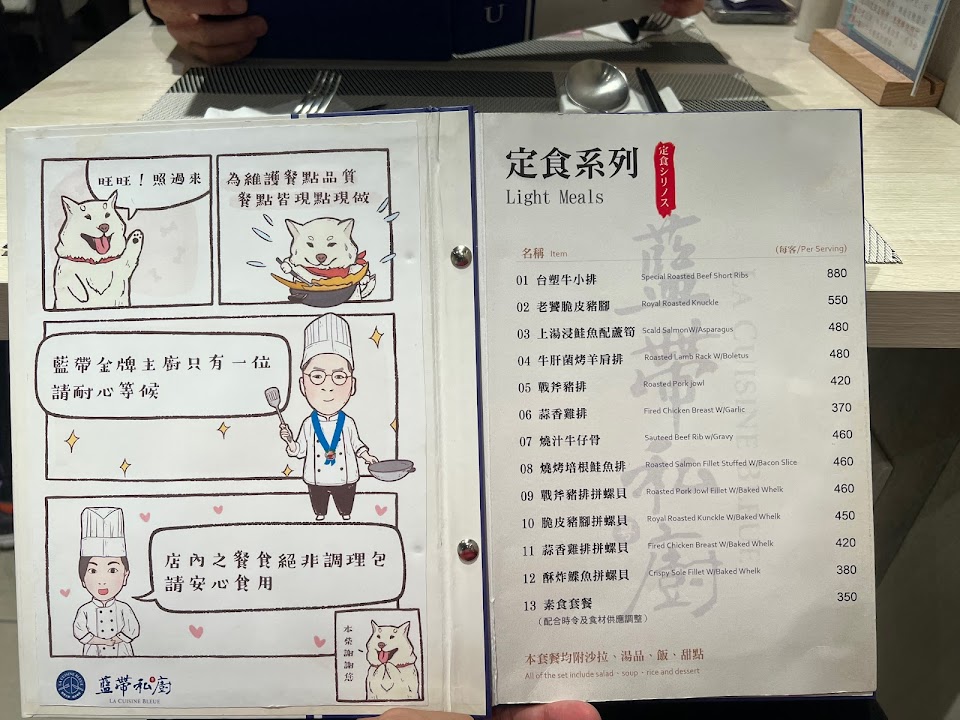 U
旺旺！照過來
為維護餐點品質
餐點皆現點現做
藍帶金牌主廚只有一位
請耐心等候
店內之餐食絕非調理包
請安心食用
本榮謝謝您
藍帶私廚
LA CUISINE BLEUE
定食系列
定食シリノス
Light Meals
名稱 Item (每客/Per Serving)
01 台塑牛小排 Special Roasted Beef Short Ribs 880
02 老饕脆皮豬腳 Royal Roasted Knuckle 550
03 上湯浸鮭魚配蘆筍 Scald SalmonW/Asparagus 480
04 牛肝菌烤羊肩排 Roasted Lamb Rack W/Boletus 480
05 戰斧豬排 Roasted Pork Jowl 420
06 蒜香雞排 Fired Chicken Breast W/Garlic 370
07 燒汁牛仔骨 Sauteed Beef Rib w/Gravy 460
08 燒烤培根鮭魚排 Roasted Salmon Fillet Stuffed W/Bacon Slice 460
09 戰斧豬排拼螺貝 Roasted Pork Jowl Fillet W/Baked Whelk 460
10 脆皮豬腳拼螺貝 Royal Roasted Kunckle W/Baked Whelk 450
11 蒜香雞排拼螺貝 Fired Chicken Breast W/Baked Whelk 420
12 酥炸鰈魚拼螺貝 Crispy Sole Fillet W/Baked Whelk 380
13 素食套餐 350
（配合時令及食材供應調整）
本套餐均附沙拉、湯品、飯、甜點
All of the set include salad、soup、rice and dessert
藍帶私廚
LA CUISINE BLEUE